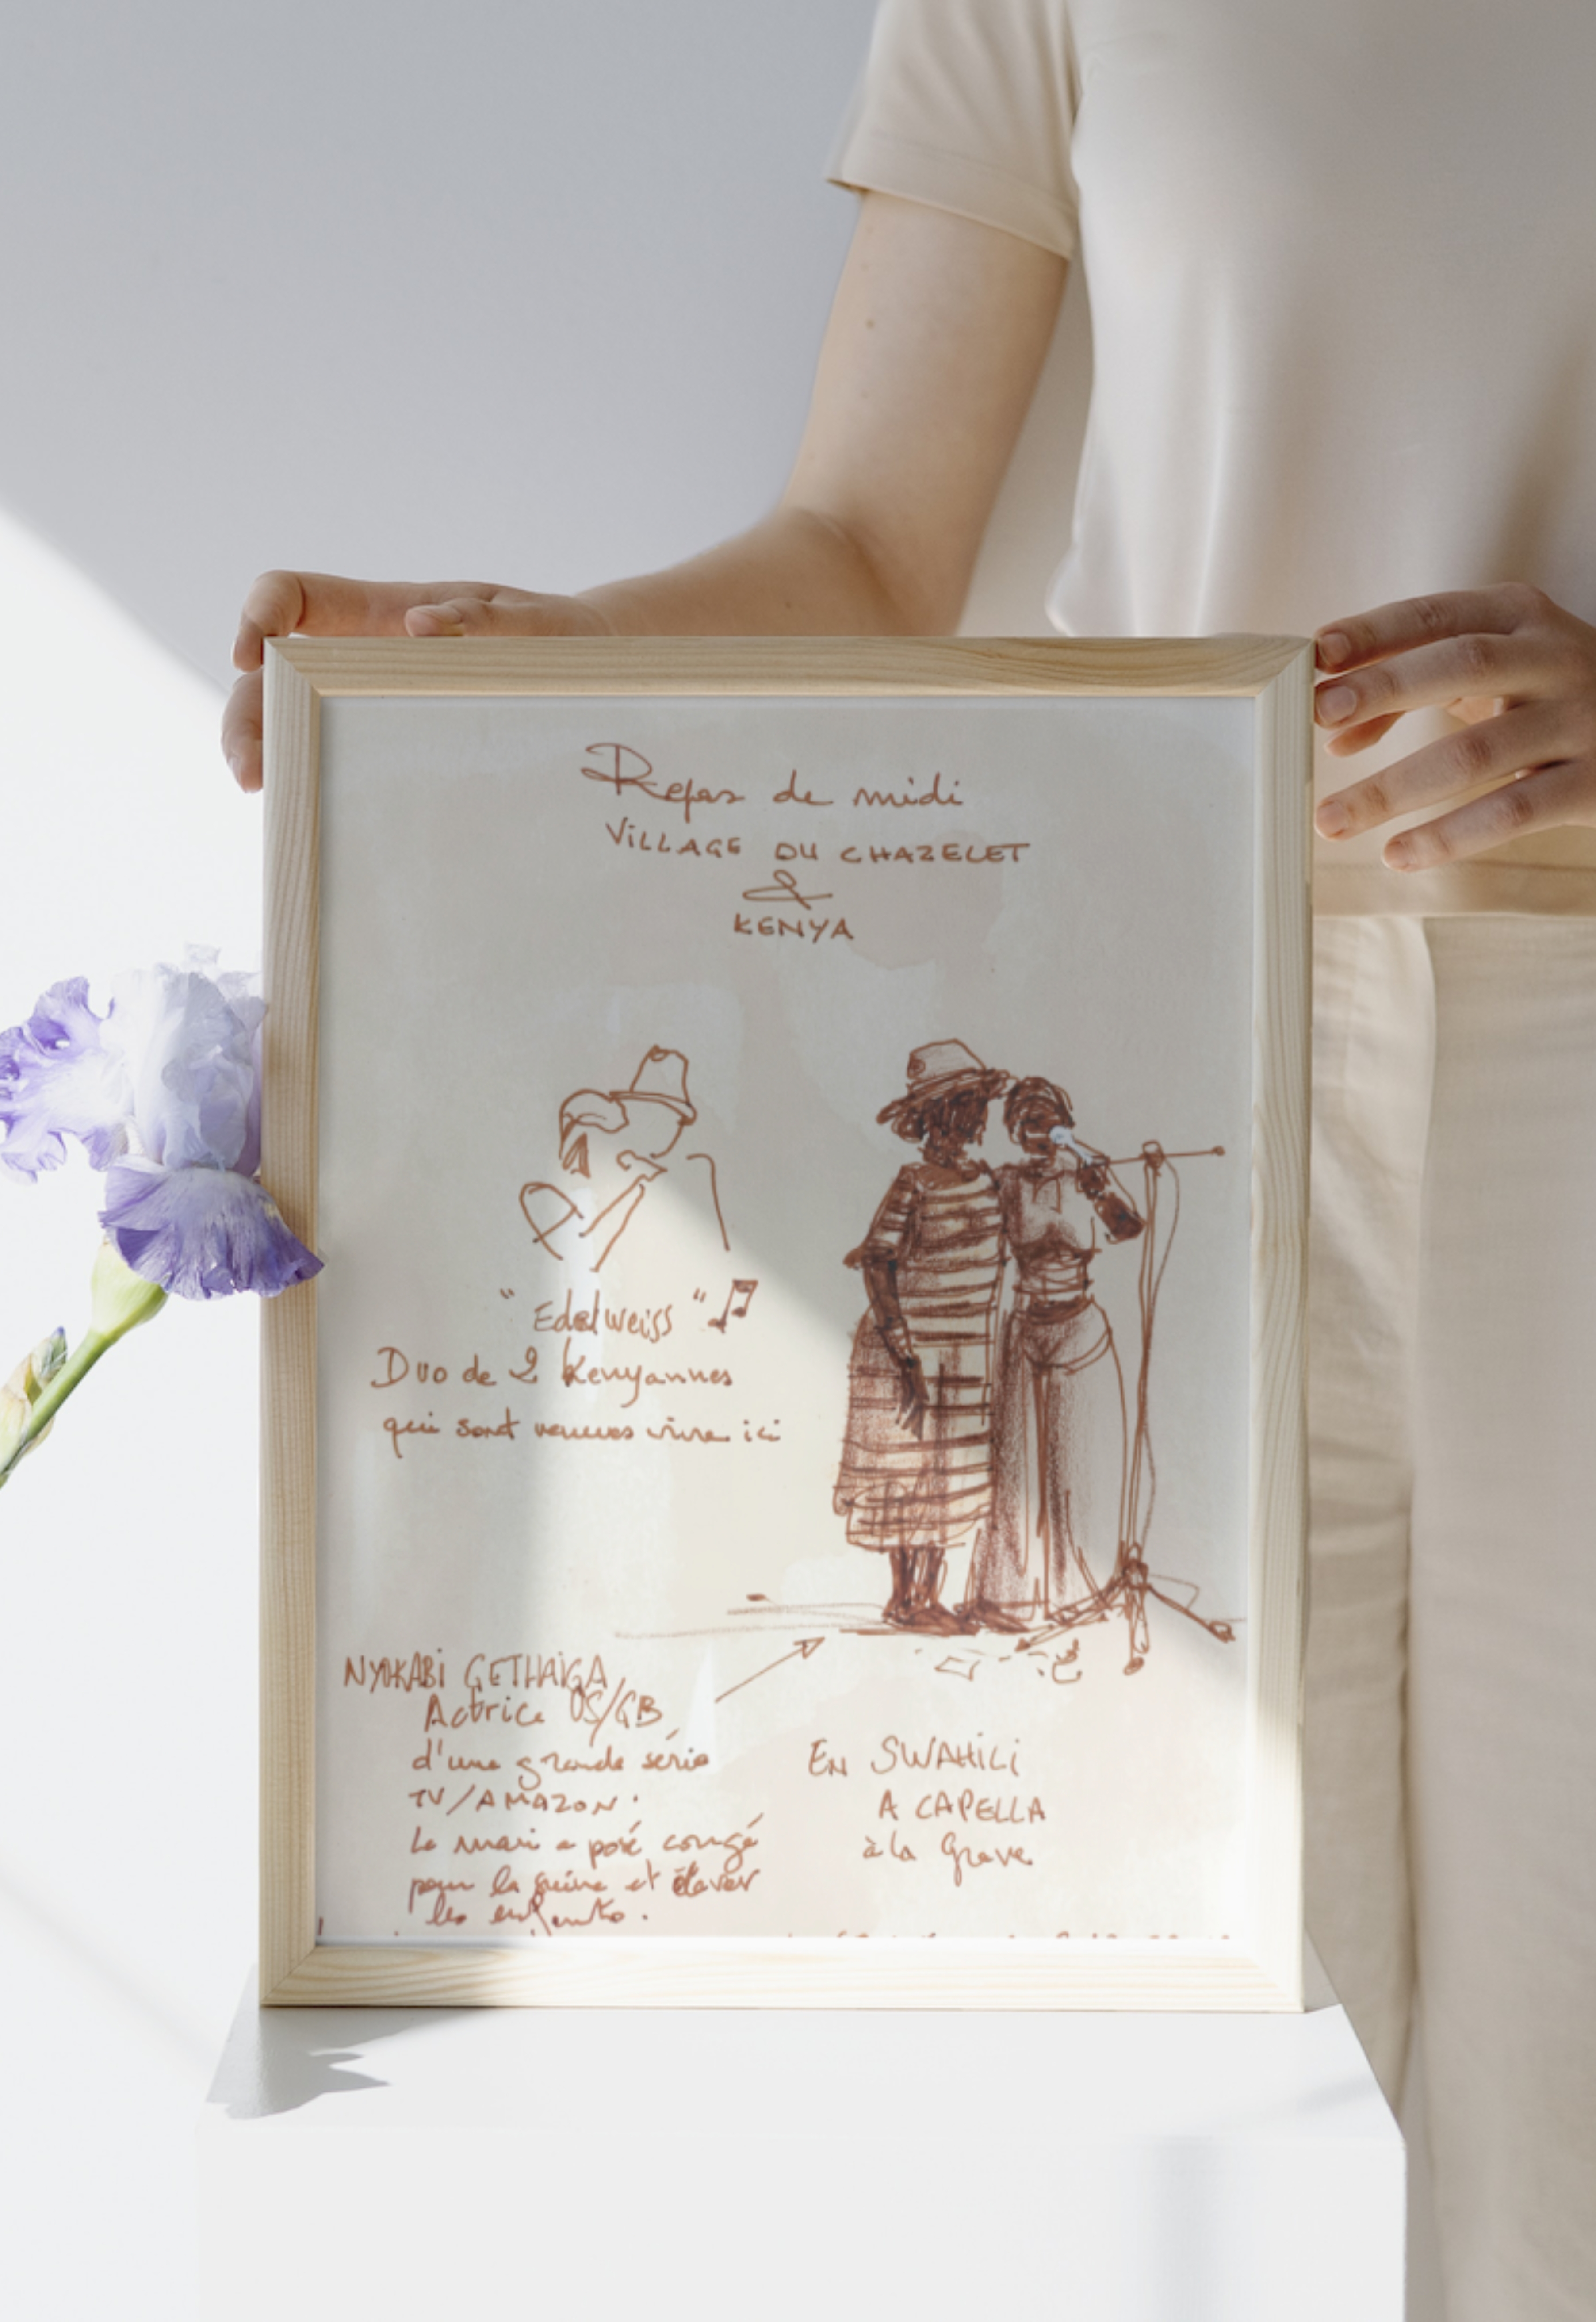 Repas de midi
ViLLAGE DU CHAZELET
&
KENYA
"Edelweiss"
Duo de 2 Kenyannes
qui sont venues vivre ici
NYOKABi GETHAiGA
Actrice US/GB
d'une grande série
TV/AMAZON.
Le mari a posé congé
pour la suivre et élever
les enfants.
EN SWAHiLi
A CAPELLA
à la Grave